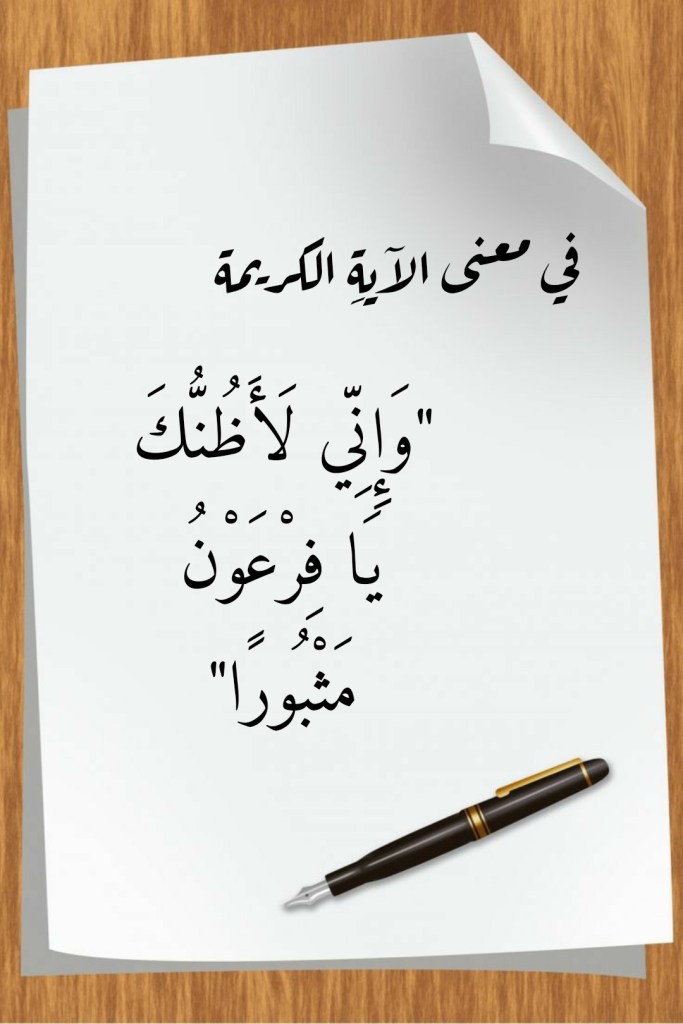 في معنى الآيةِ الكريمة
"وَإِنِّي لَأَظُنُّكَ
يَا فِرْعَوْنُ
مَثْبُورًا"